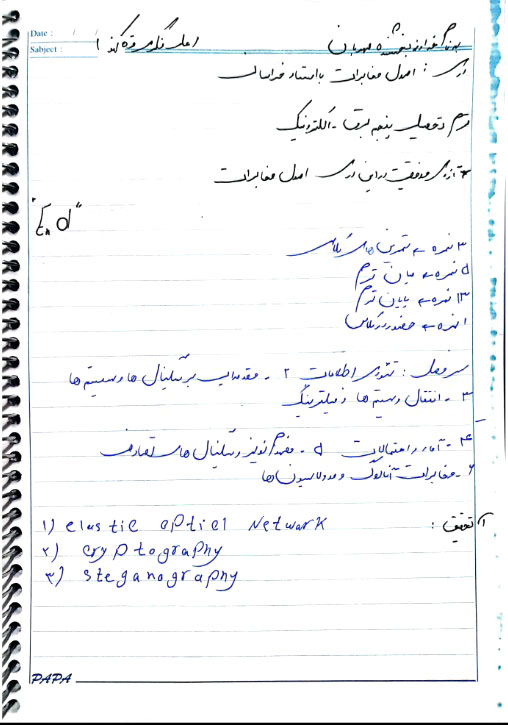 Date :    /    /
Subject :
بنام خداوند بخشنده مهربان
درس : اصول مخابرات با استاد خراسانی
ترم تحصیلی پنجم برق - الکترونیک
* آرزوی موفقیت در این درس اصول مخابرات
"End"
۳ نمره ← تمرین های کلاسی
۵ نمره ← میان ترم
۱۳ نمره ← پایان ترم
۱ نمره ← حضور در کلاس
سرفصل : تئوری اطلاعات ۲ - مقدمه‌ای بر سیگنال ها و سیستم ها
۳ - انتقال و سیستم ها و فیلترینگ
۴ - آمار و احتمالات ۵ - مفهوم نویز و سیگنال های تصادفی
۶ - مخابرات آنالوگ و مدولاسیون ها
تحقیق :
1) elastic optical Network
۲) cryptography
۳) steganography
PAPA